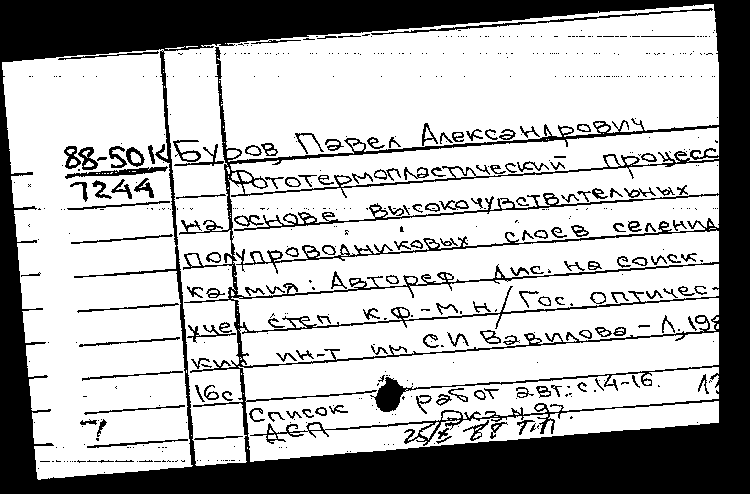 88-50К Буров, Павел Александрович
7244 Фототермопластический процесс
на основе высокочувствительных
полупроводниковых слоев селенид
кадмия: Автореф. дис. на соиск.
учен степ. к.ф.-м.н/Гос. оптичес-
кий ин-т им. С.И. Вавилова.-Л, 198
16с.
Список работ авт.: с.14-16.
ДСП Экз N 97.
7 25/8 88